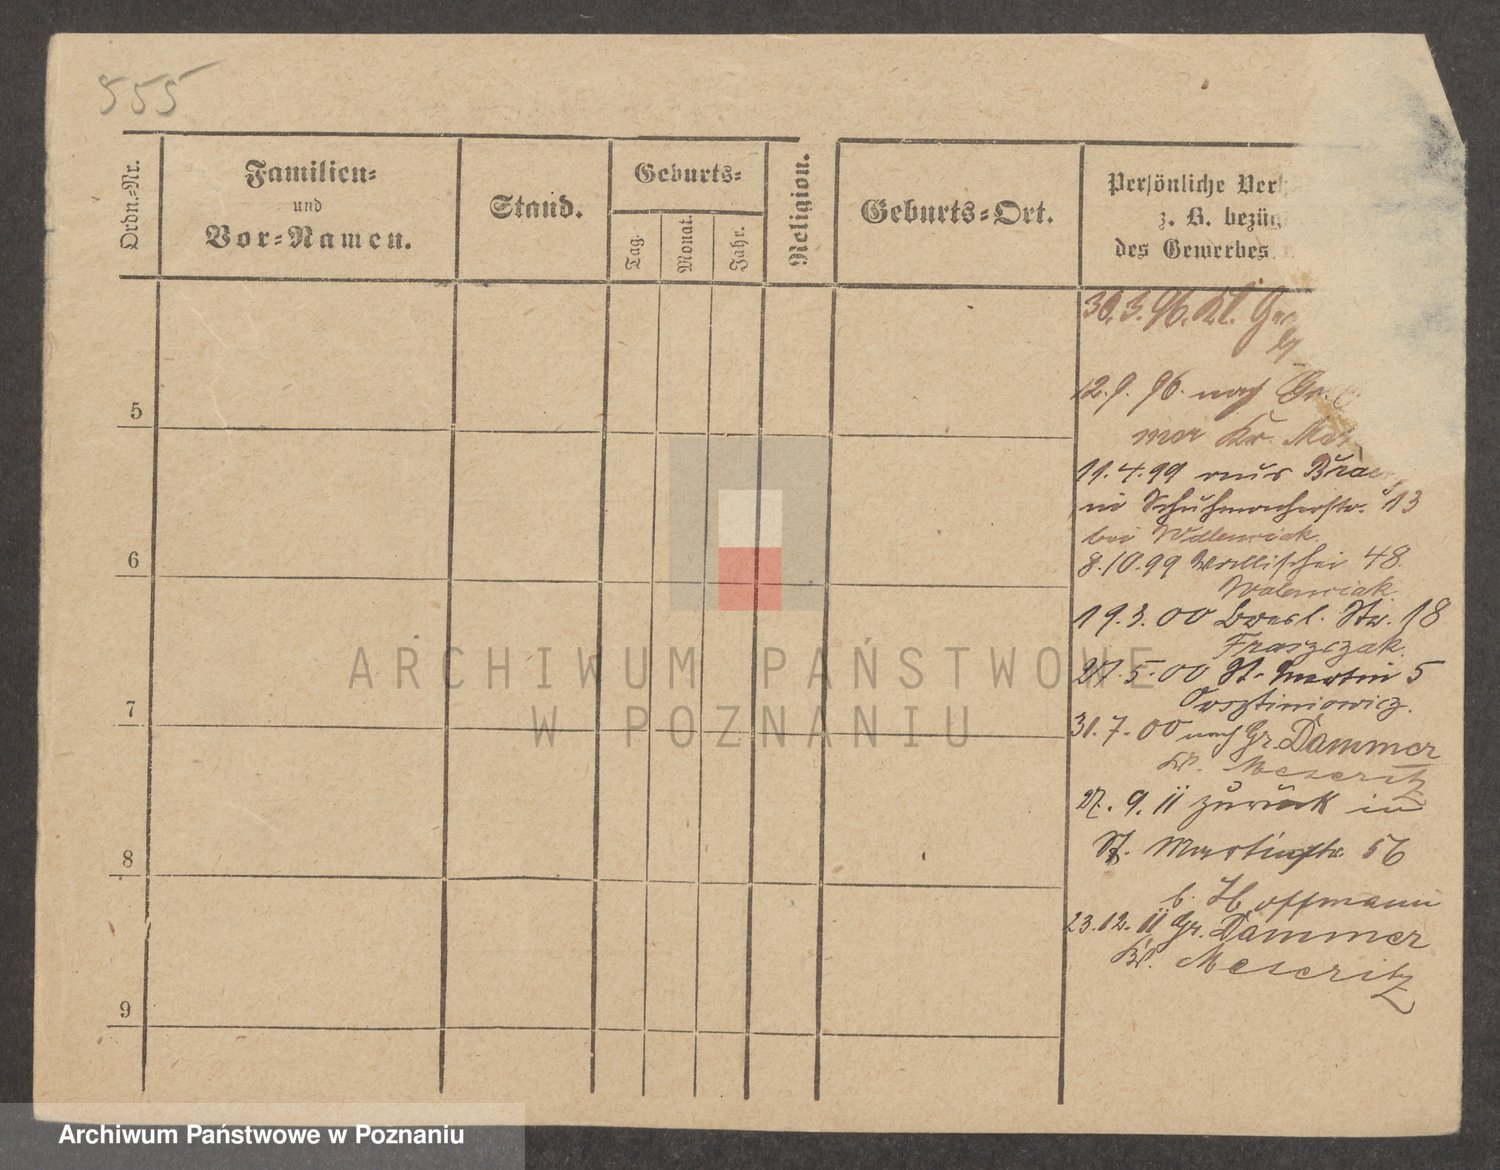 555
Ordn.-Nr.
Familien-
und
Vor-Namen.
Stand.
Geburts-
Tag.
Monat.
Jahr.
Religion.
Geburts-Ort.
Persönliche
z. B.
des Gewerbes
30.3.96. Kl.
12.9.96. nach
mer Kr.
11.4.99 aus
in Schuhmacherstr. 13
bei
8.10.99 Wallischei 48.
Walenciak.
19.3.00 Bresl. Str. 18
Fraszczak.
27.5.00 St. Martin 5
31.7.00 nach Gr. Dammer
Kr. Meseritz
27.9.11 zurück in
St. Martinstr. 56
b. Hoffmann
23.12.11 Gr. Dammer
Kr. Meseritz
5
6
7
8
9
ARCHIWUM PAŃSTWOWE
W POZNANIU
Archiwum Państwowe w Poznaniu